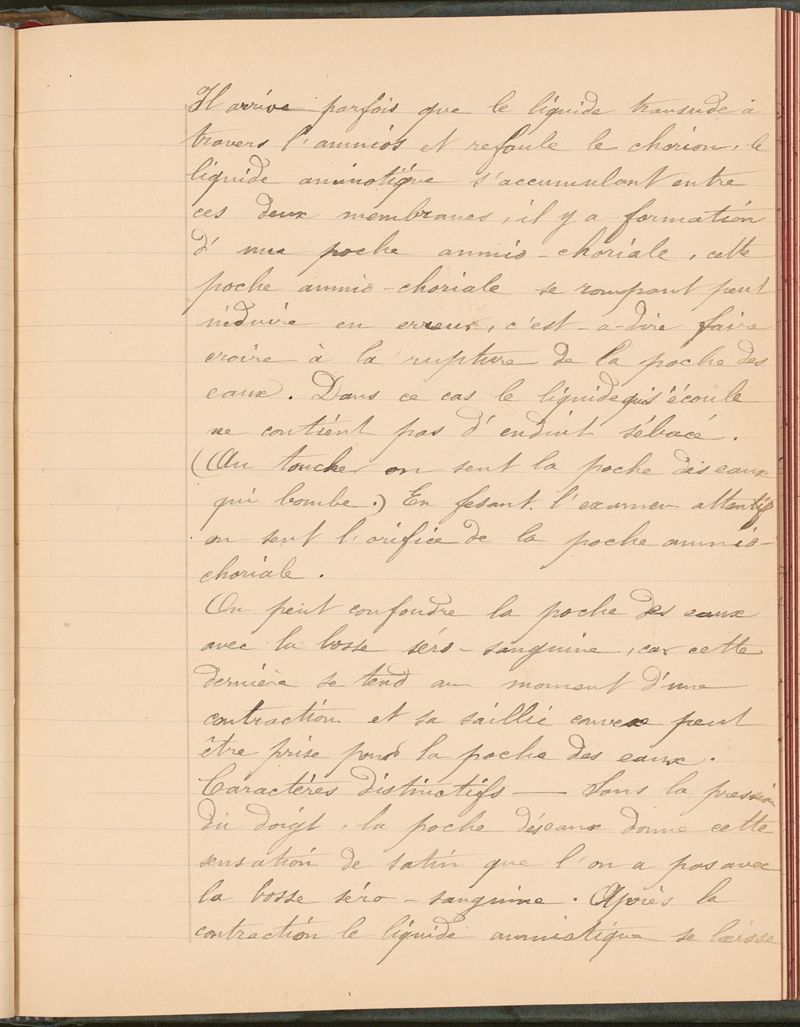 Il arrive parfois que le liquide transude à
travers l'amnios et refoule le chorion, le
liquide aminotique s'accumulant entre
ces deux membranes, il y a formation
d'une poche amnio-choriale, cette
poche amnio-choriale se rompant peut
induire en erreur, c'est-a-dire faire
croire à la rupture de la poche des
eaux. Dans ce cas le liquide qui s'écoule
ne contient pas d'enduit sébacé.
(Au toucher on sent la poche des eaux
qui bombe.) En fesant l'examen attentif
on sent l'orifice de la poche amnio-
choriale.
On peut confondre la poche des eaux
avec la bosse séro-sanguine, car cette
dernière se tend au moment d'une
contraction et sa saillie convexe peut
être prise pour la poche des eaux.
Caractères distinctifs — Sous la pression
du doigt, la poche des eaux donne cette
sensation de satin que l'on a pas avec
la bosse séro-sanguine. Après la
contraction le liquide amniotique se laisse